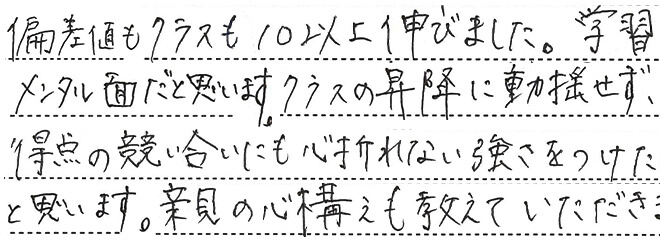 偏差値もクラスも10以上伸びました。学習
メンタル面だと思います。クラスの昇降に動揺せず、
得点の競い合いにも心折れない強さをつけた
と思います。親の心構えも教えていただきま